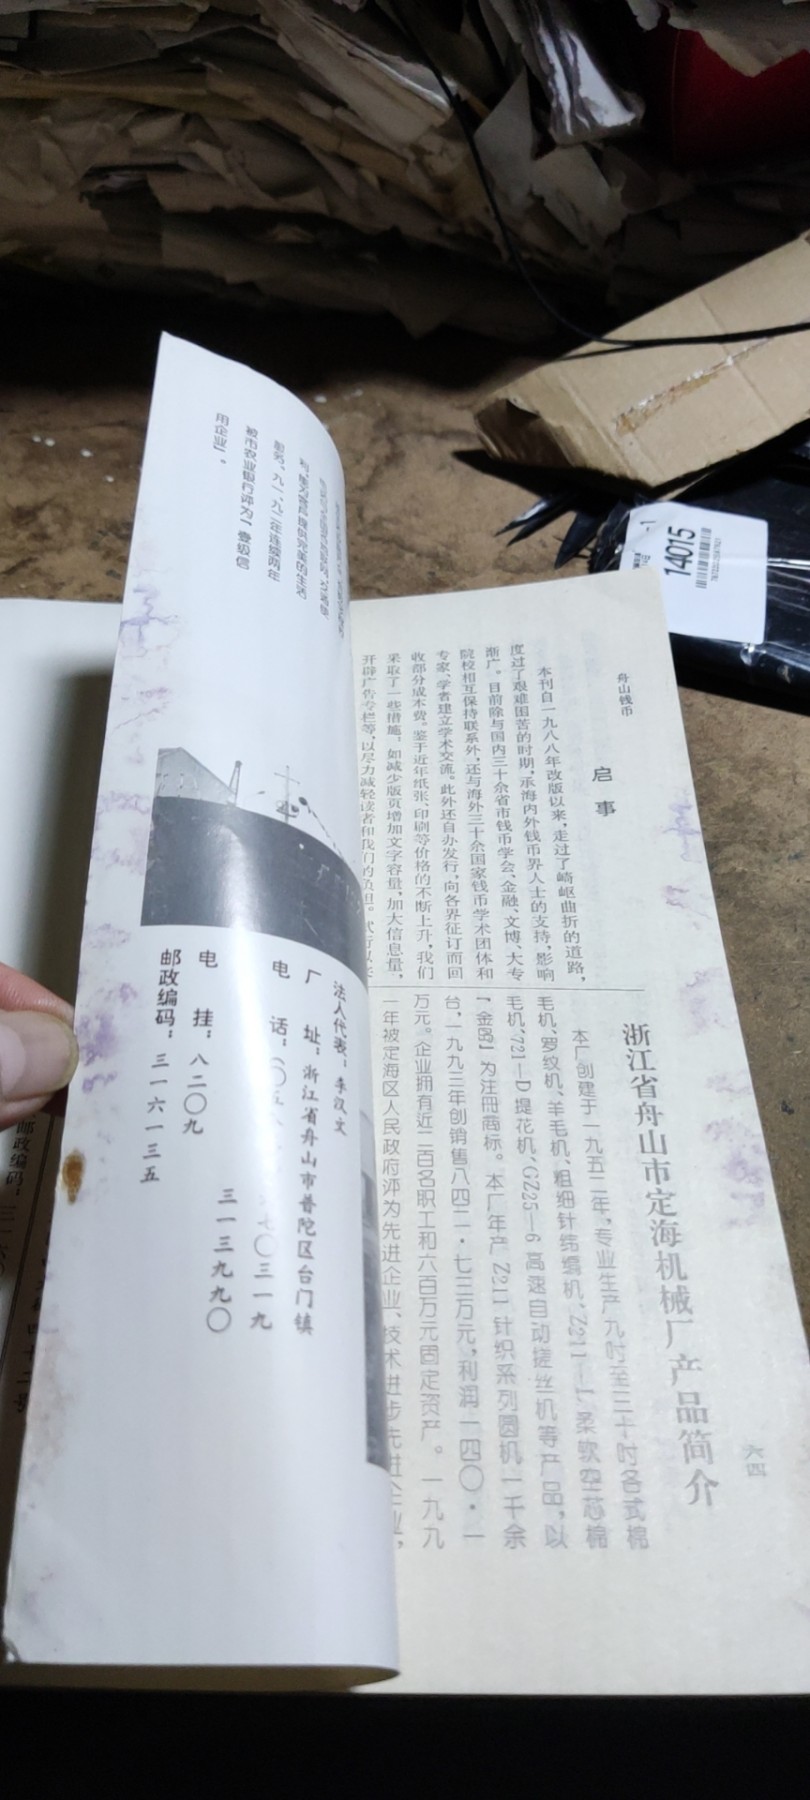 舟山钱币
启事
本刊自一九八八年改版以来，走过了崎岖曲折的道路，
度过了艰难困苦的时期，承海内外钱币界人士的支持，影响
渐广。目前除与国内三十余省市钱币学会、金融、文博、大专
院校相互保持联系外，还与海外三十余国家钱币学术团体和
专家、学者建立学术交流。此外还自办发行，向各界征订而回
收部分成本费。鉴于近年纸张、印刷等价格的不断上升，我们
采取了一些措施。如减少版页增加文字容量，加大信息量，
开辟广告专栏等，以尽力减轻读者和我们的负担。
六四
浙江省舟山市定海机械厂产品简介
本厂创建于一九五二年，专业生产九吋至三十吋各式棉
毛机、罗纹机、羊毛机、粗细针纬编机、Z211—1柔软空芯棉
毛机、721—D提花机、GZ25—6高速自动搓丝机等产品，以
「金岛」为注册商标。本厂年产Z211针织系列圆机一千余
台，一九九三年创销售八四二·七三万元，利润一四〇·一
万元。企业拥有近二百名职工和六百万元固定资产。一九九
一年被定海区人民政府评为先进企业、技术进步先进企业，
利，能为客户提供完美的生活
服务。九一、九二年连续两年
被市农业银行评为「壹级信
用企业」。
法人代表：李汉文
厂 址：浙江省舟山市普陀区台门镇
电 话：（〇五 七〇三一九
三一三九九〇
电 挂：八二〇九
邮政编码：三一六一三五
邮政编码：三一六〇
14015